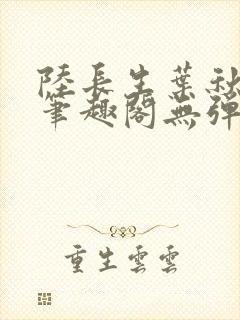 陸長生葉秋
筆趣閣無彈
重生雲雲